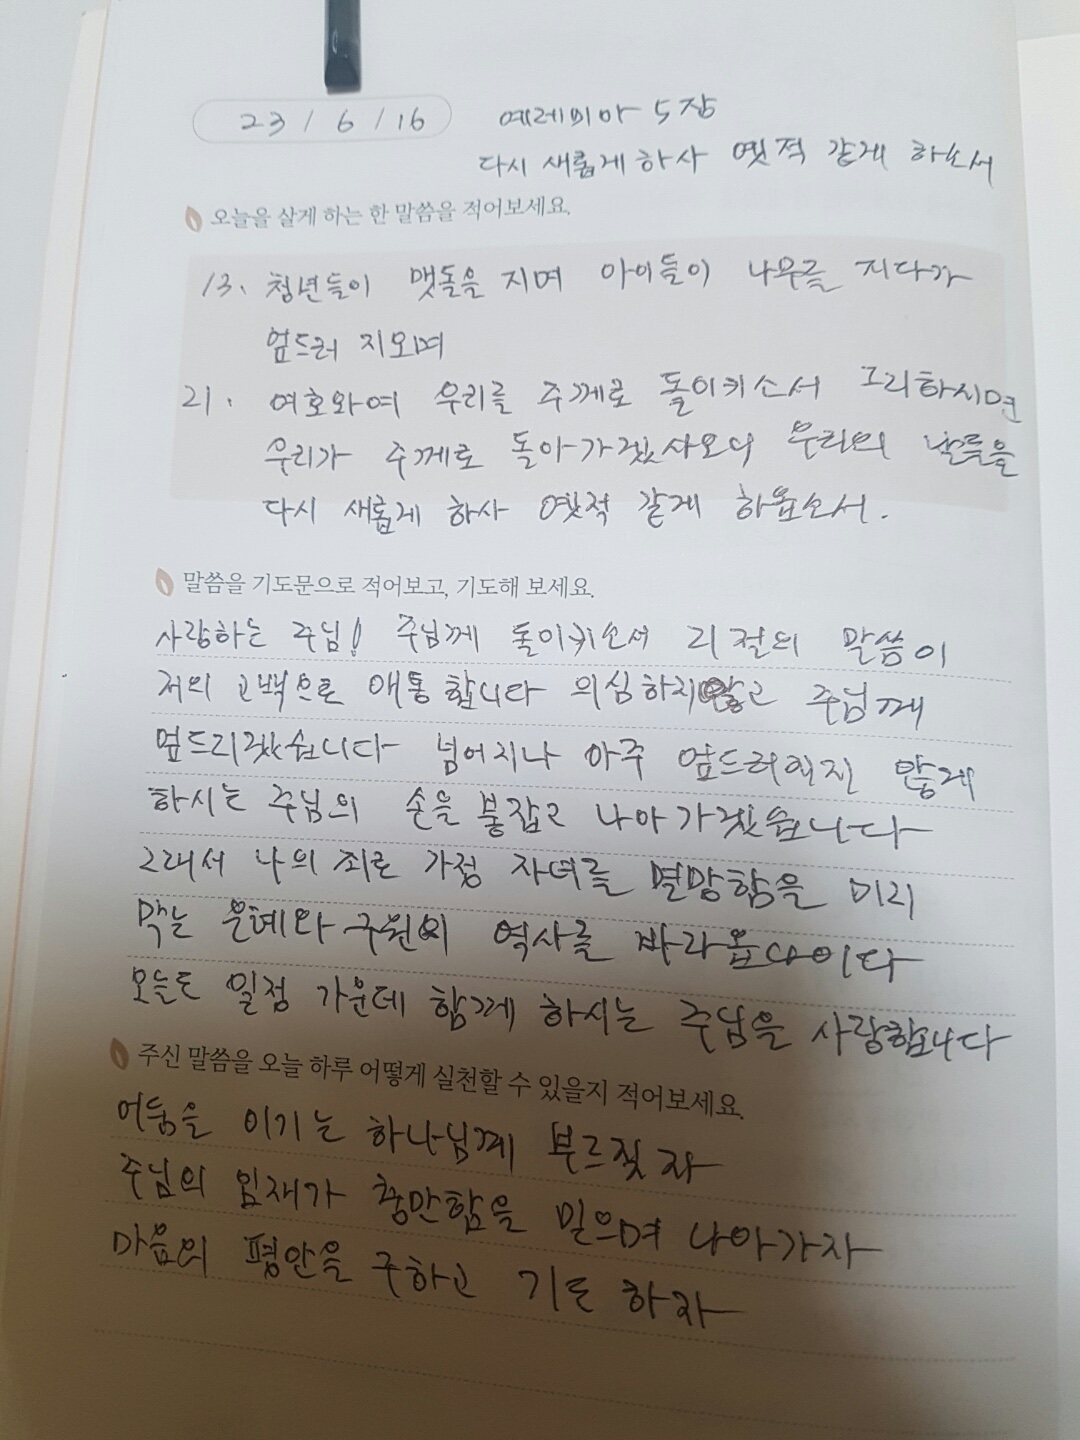 23 / 6 / 16 예레미아 5장
다시 새롭게 하사 옛적 같게 하소서
오늘을 살게 하는 한 말씀을 적어보세요.
13. 청년들이 맷돌을 지며 아이들이 나무를 지다가
엎드러 지오며
21. 여호와여 우리를 주께로 돌이키소서 그리하시면
우리가 주께로 돌아가겠사오니 우리의 날들을
다시 새롭게 하사 옛적 같게 하옵소서.
말씀을 기도문으로 적어보고, 기도해 보세요.
사랑하는 주님! 주님께 돌이키소서 21절의 말씀이
저의 고백으로 애통합니다 의심하지않고 주님께
엎드리겠습니다 넘어지나 아주 엎드러지진 않게
하시는 주님의 손을 붙잡고 나아가겠습니다
그래서 나의 죄로 가정 자녀를 멸망함을 미리
막는 은혜와 구원의 역사를 바라옵나이다
오늘도 일정 가운데 함께 하시는 주님을 사랑합니다
주신 말씀을 오늘 하루 어떻게 실천할 수 있을지 적어보세요.
어둠을 이기는 하나님께 부르짖자
주님의 임재가 충만함을 믿으며 나아가자
마음의 평안을 구하고 기도 하자